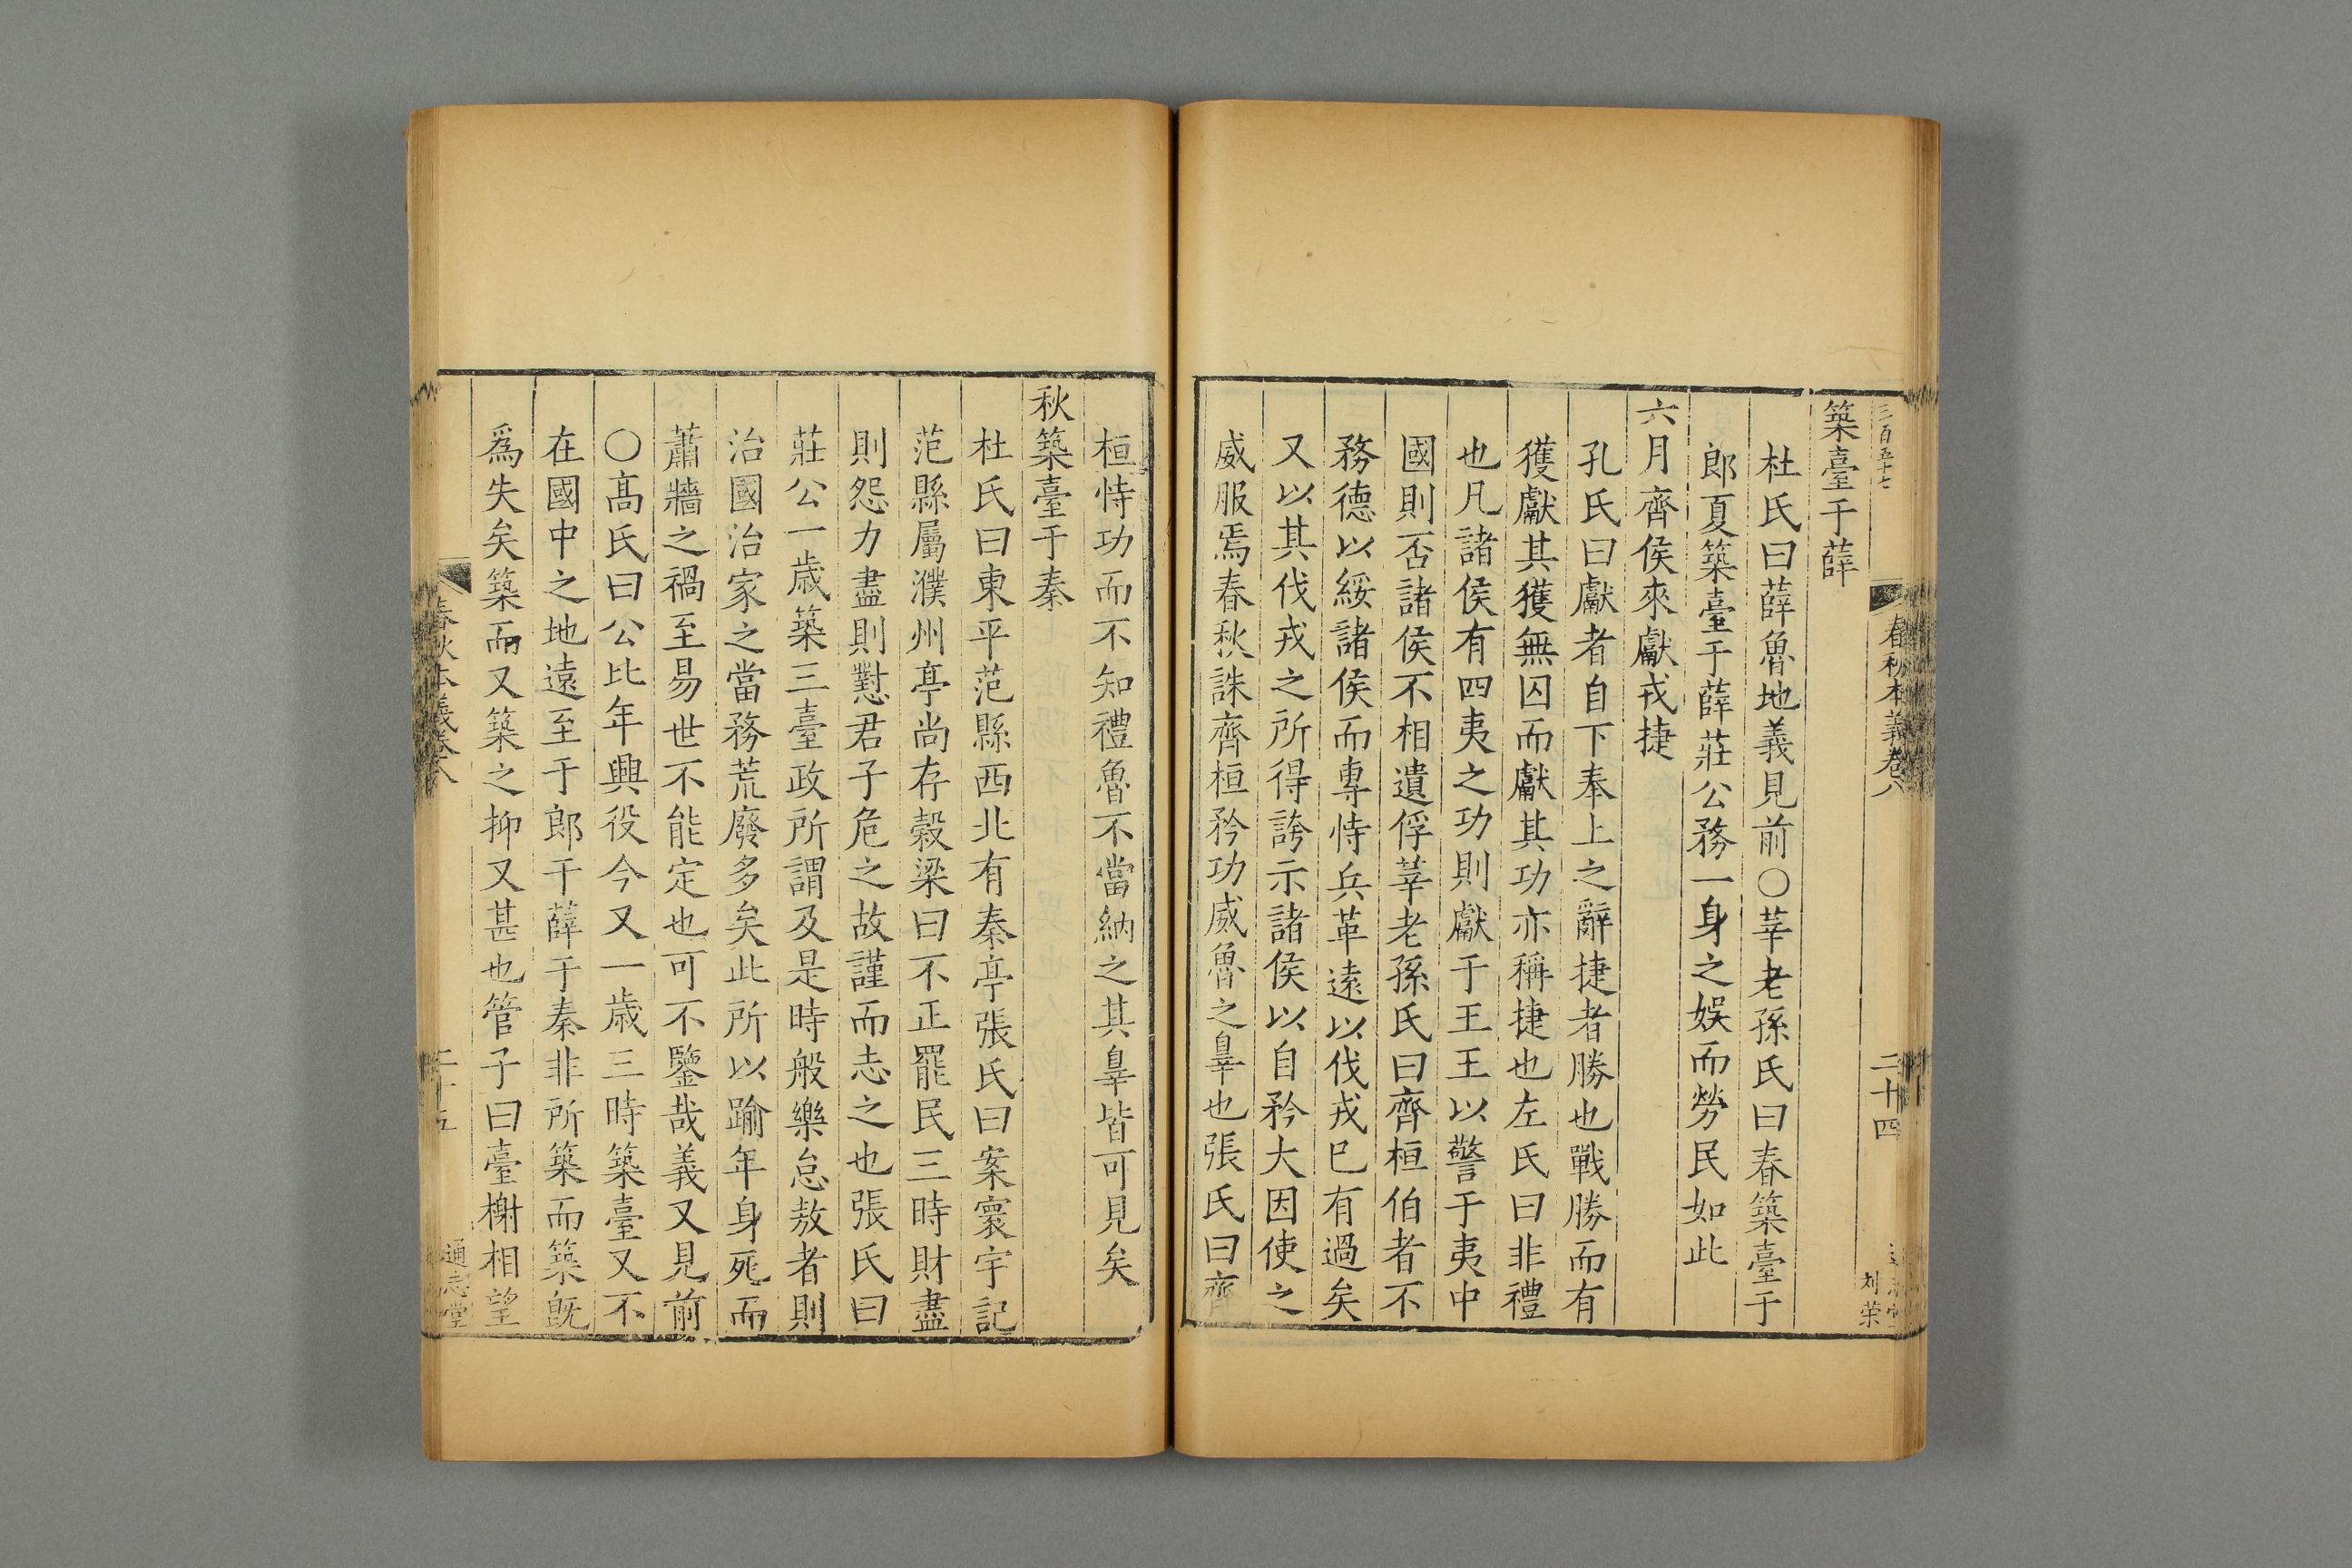 三百五十七
春秋本義卷八
二十四
刘荣
築臺于薛
杜氏曰薛魯地義見前○莘老孫氏曰春築臺于
郎夏築臺于薛莊公務一身之娛而勞民如此
六月齊侯來獻戎捷
孔氏曰獻者自下奉上之辭捷者勝也戰勝而有
獲獻其獲無囚而獻其功亦稱捷也左氏曰非禮
也凡諸侯有四夷之功則獻于王王以警于夷中
國則否諸侯不相遺俘莘老孫氏曰齊桓伯者不
務德以綏諸侯而專恃兵革遠以伐戎巳有過矣
又以其伐戎之所得誇示諸侯以自矜大因使之
威服焉春秋誅齊桓矜功威魯之辠也張氏曰齊
桓恃功而不知禮魯不當納之其辠皆可見矣
秋築臺于秦
杜氏曰東平范縣西北有秦亭張氏曰案寰宇記
范縣屬濮州亭尚存榖梁曰不正罷民三時財盡
則怨力盡則懟君子危之故謹而志之也張氏曰
莊公一歲築三臺政所謂及是時般樂怠敖者則
治國治家之當務荒廢多矣此所以踰年身死而
蕭牆之禍至易世不能定也可不鑒哉義又見前
○高氏曰公比年興役今又一歲三時築臺又不
在國中之地遠至于郎于薛于秦非所築而築旣
爲失矣築而又築之抑又甚也管子曰臺榭相望
春秋本義卷八
二十五
通志堂